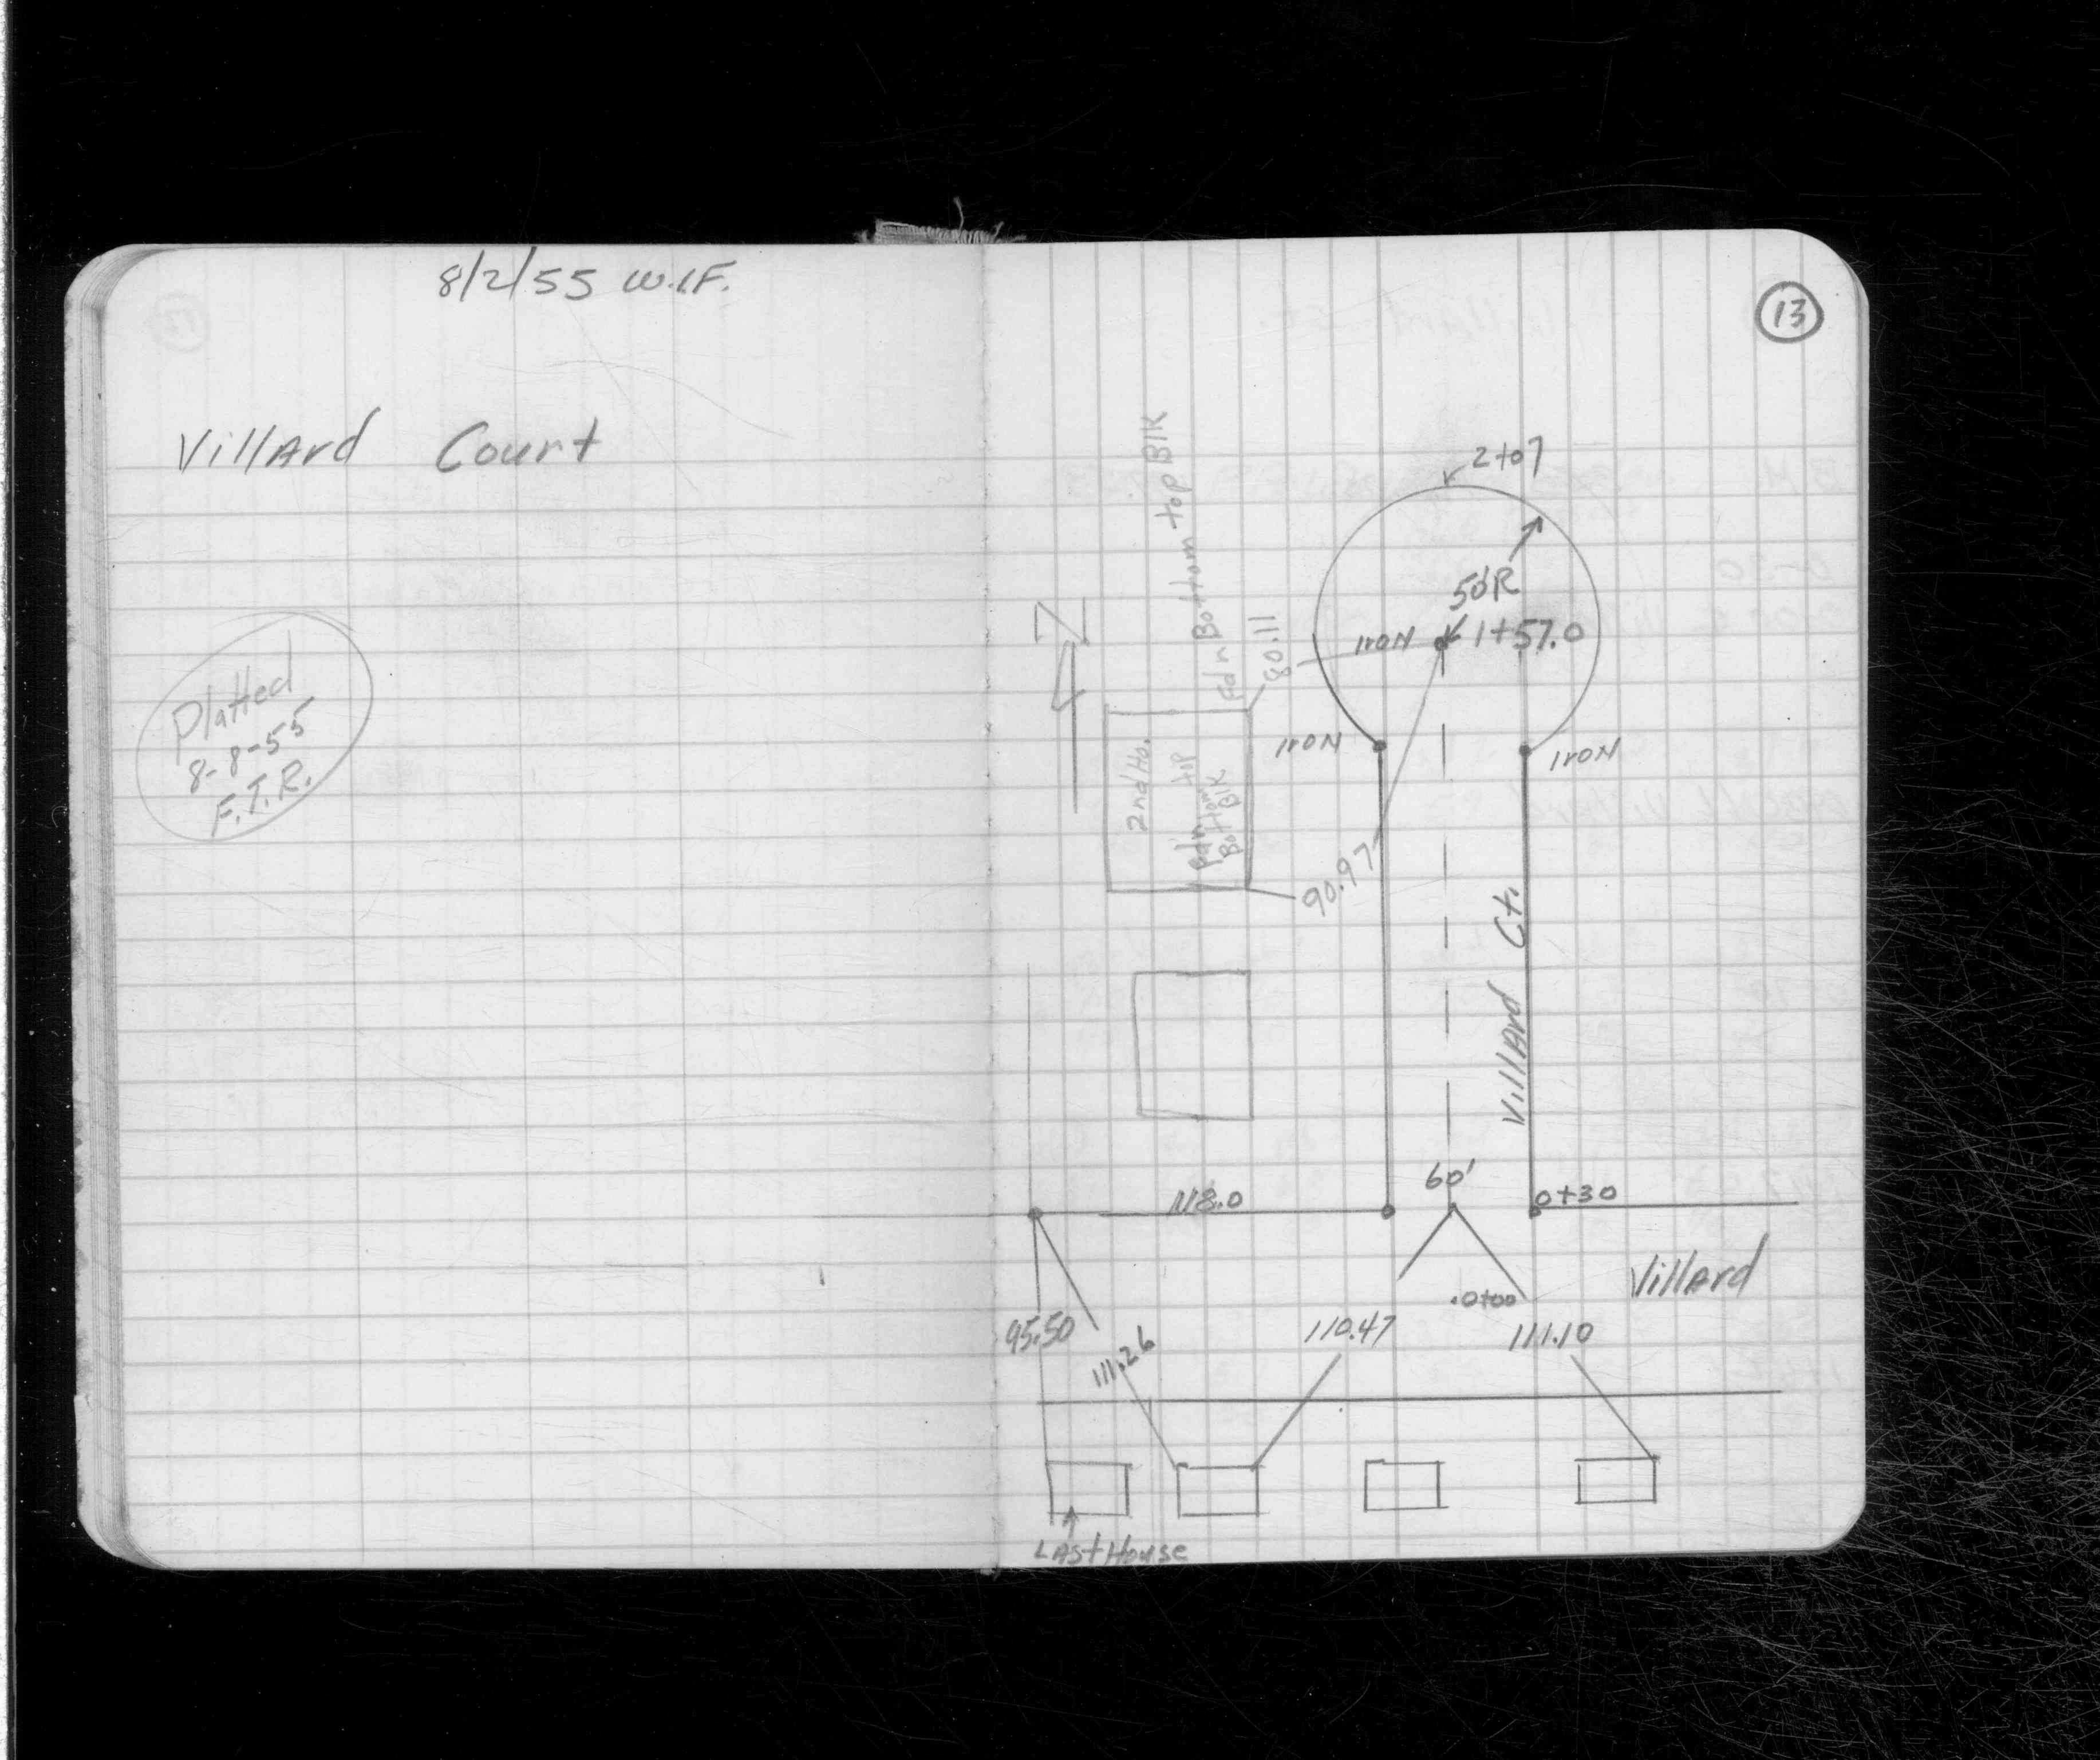 8/2/55 W.I.F.
13
Villard Court
Platted
8-8-55
F.T.R.
2+07
50'R
Iron
1+57.0
N
Fdn Bottom top Blk
80.11
Iron
Iron
2nd Ho.
Fdn
Bottom top
Blk
90.97
Villard Ct.
60'
118.0
0+30
0+00
Villard
95.50
111.26
110.47
111.10
Last House